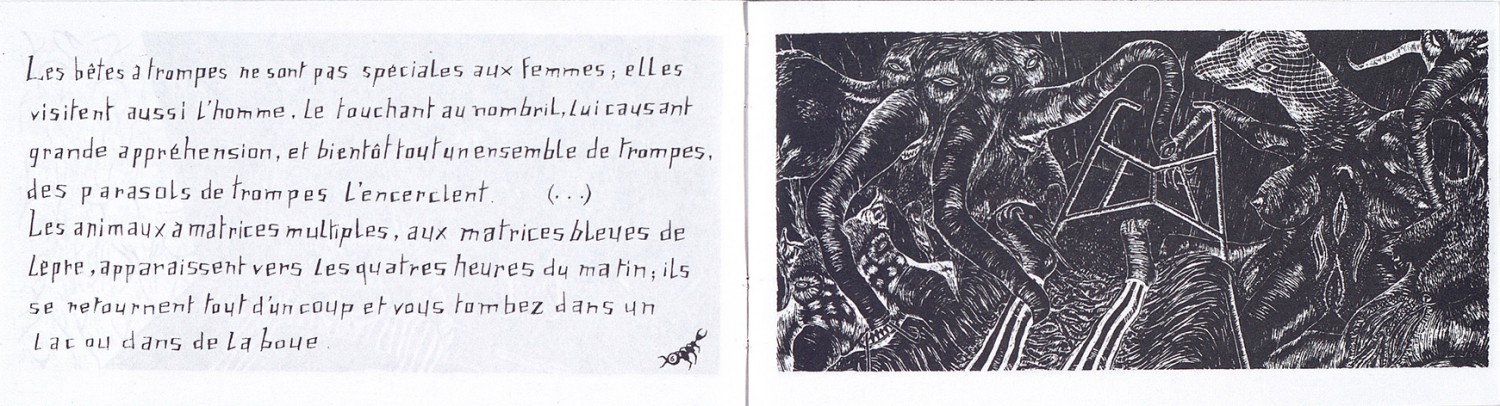 Les bêtes à trompes ne sont pas spéciales aux femmes ; elles
visitent aussi l'homme, le touchant au nombril, lui causant
grande appréhension, et bientôt tout un ensemble de trompes,
des parasols de trompes l'encerclent. (...)
Les animaux à matrices multiples, aux matrices bleues de
lèpre, apparaissent vers les quatres heures du matin ; ils
se retournent tout d'un coup et vous tombez dans un
lac ou dans de la boue.